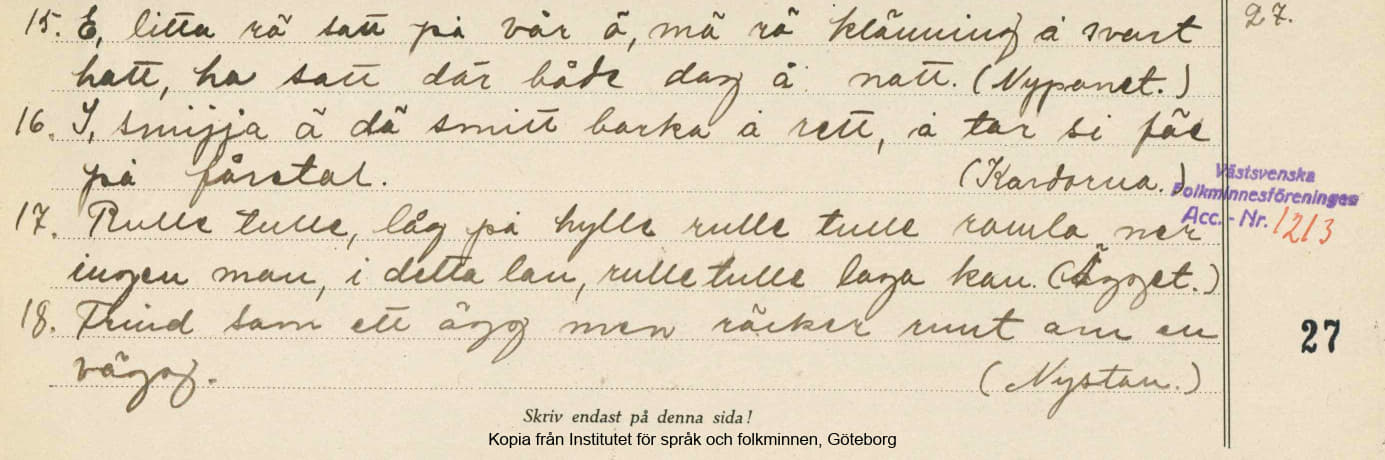 15. E, litta rö satt på vår ö, mä rö klänning å svart
hatt, ha satt där både dag å natt. (Nyponet.)
16. I, smijja ä dä smitt barka å rett, å tar si föe
på fårstal. (Kardorna.)
17. Rulle tulle, låg på hylle rulle tulle ramla ner
ingen man, i detta lan, rulle tulle laga kan. (Ägget.)
18. Trind som ett ägg men räcker runt om en
vägg. (Nystan.)
27.
Västsvenska
Folkminnesföreningen
Acc. - Nr. 1213
27
Skriv endast på denna sida!
Kopia från Institutet för språk och folkminnen, Göteborg